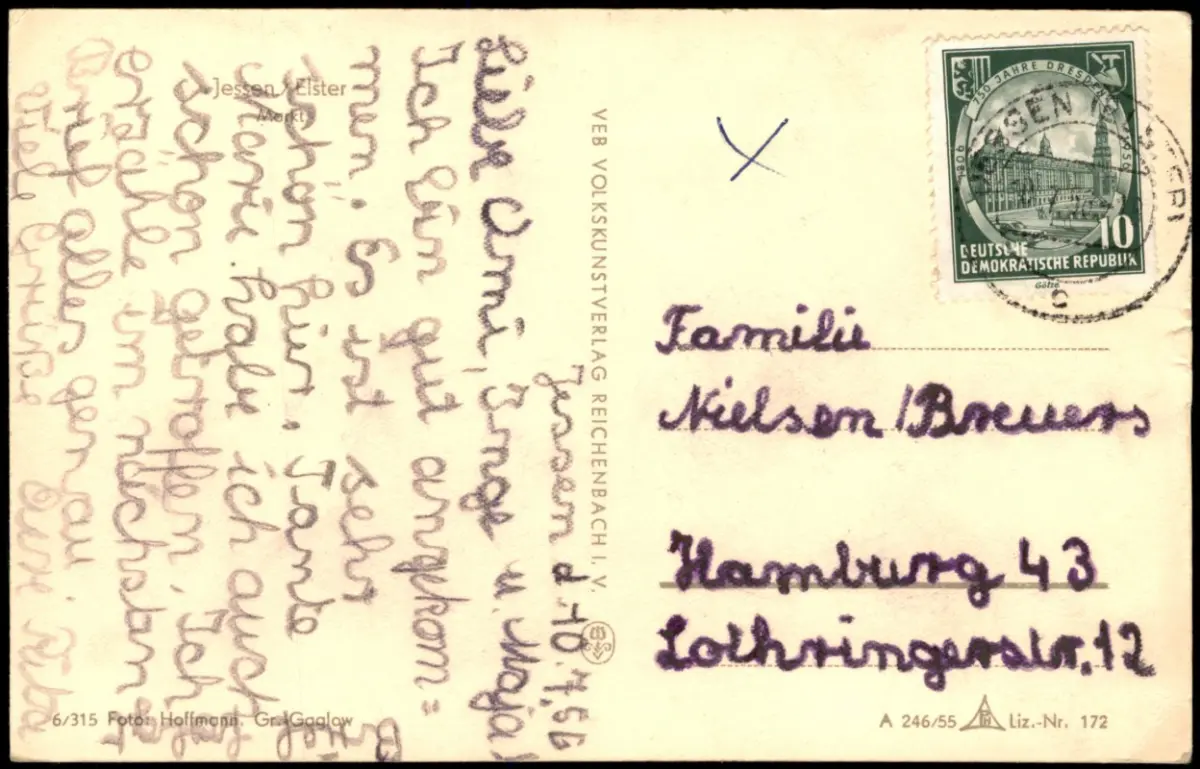 Jessen / Elster
Markt
Jessen d. 10.7.56
Liebe Omi, Inge u. Maja!
Ich bin gut angekom=
men. Es ist sehr
schön hier. Tante
habe ich auch
schon getroffen. Ich
erzähle im nächsten
Brief alles genau
Viele Grüße
6/315 Foto: Hoffmann, Gr. Gaglow
VEB VOLKSKUNSTVERLAG REICHENBACH I. V.
750 JAHRE DRESDEN
1206 1956
10
DEUTSCHE
DEMOKRATISCHE REPUBLIK
JESSEN (ELSTER)
c
Familie
Nielsen / Breuers
Hamburg 43
Lothringerstr. 12
A 246/55 Liz.-Nr. 172